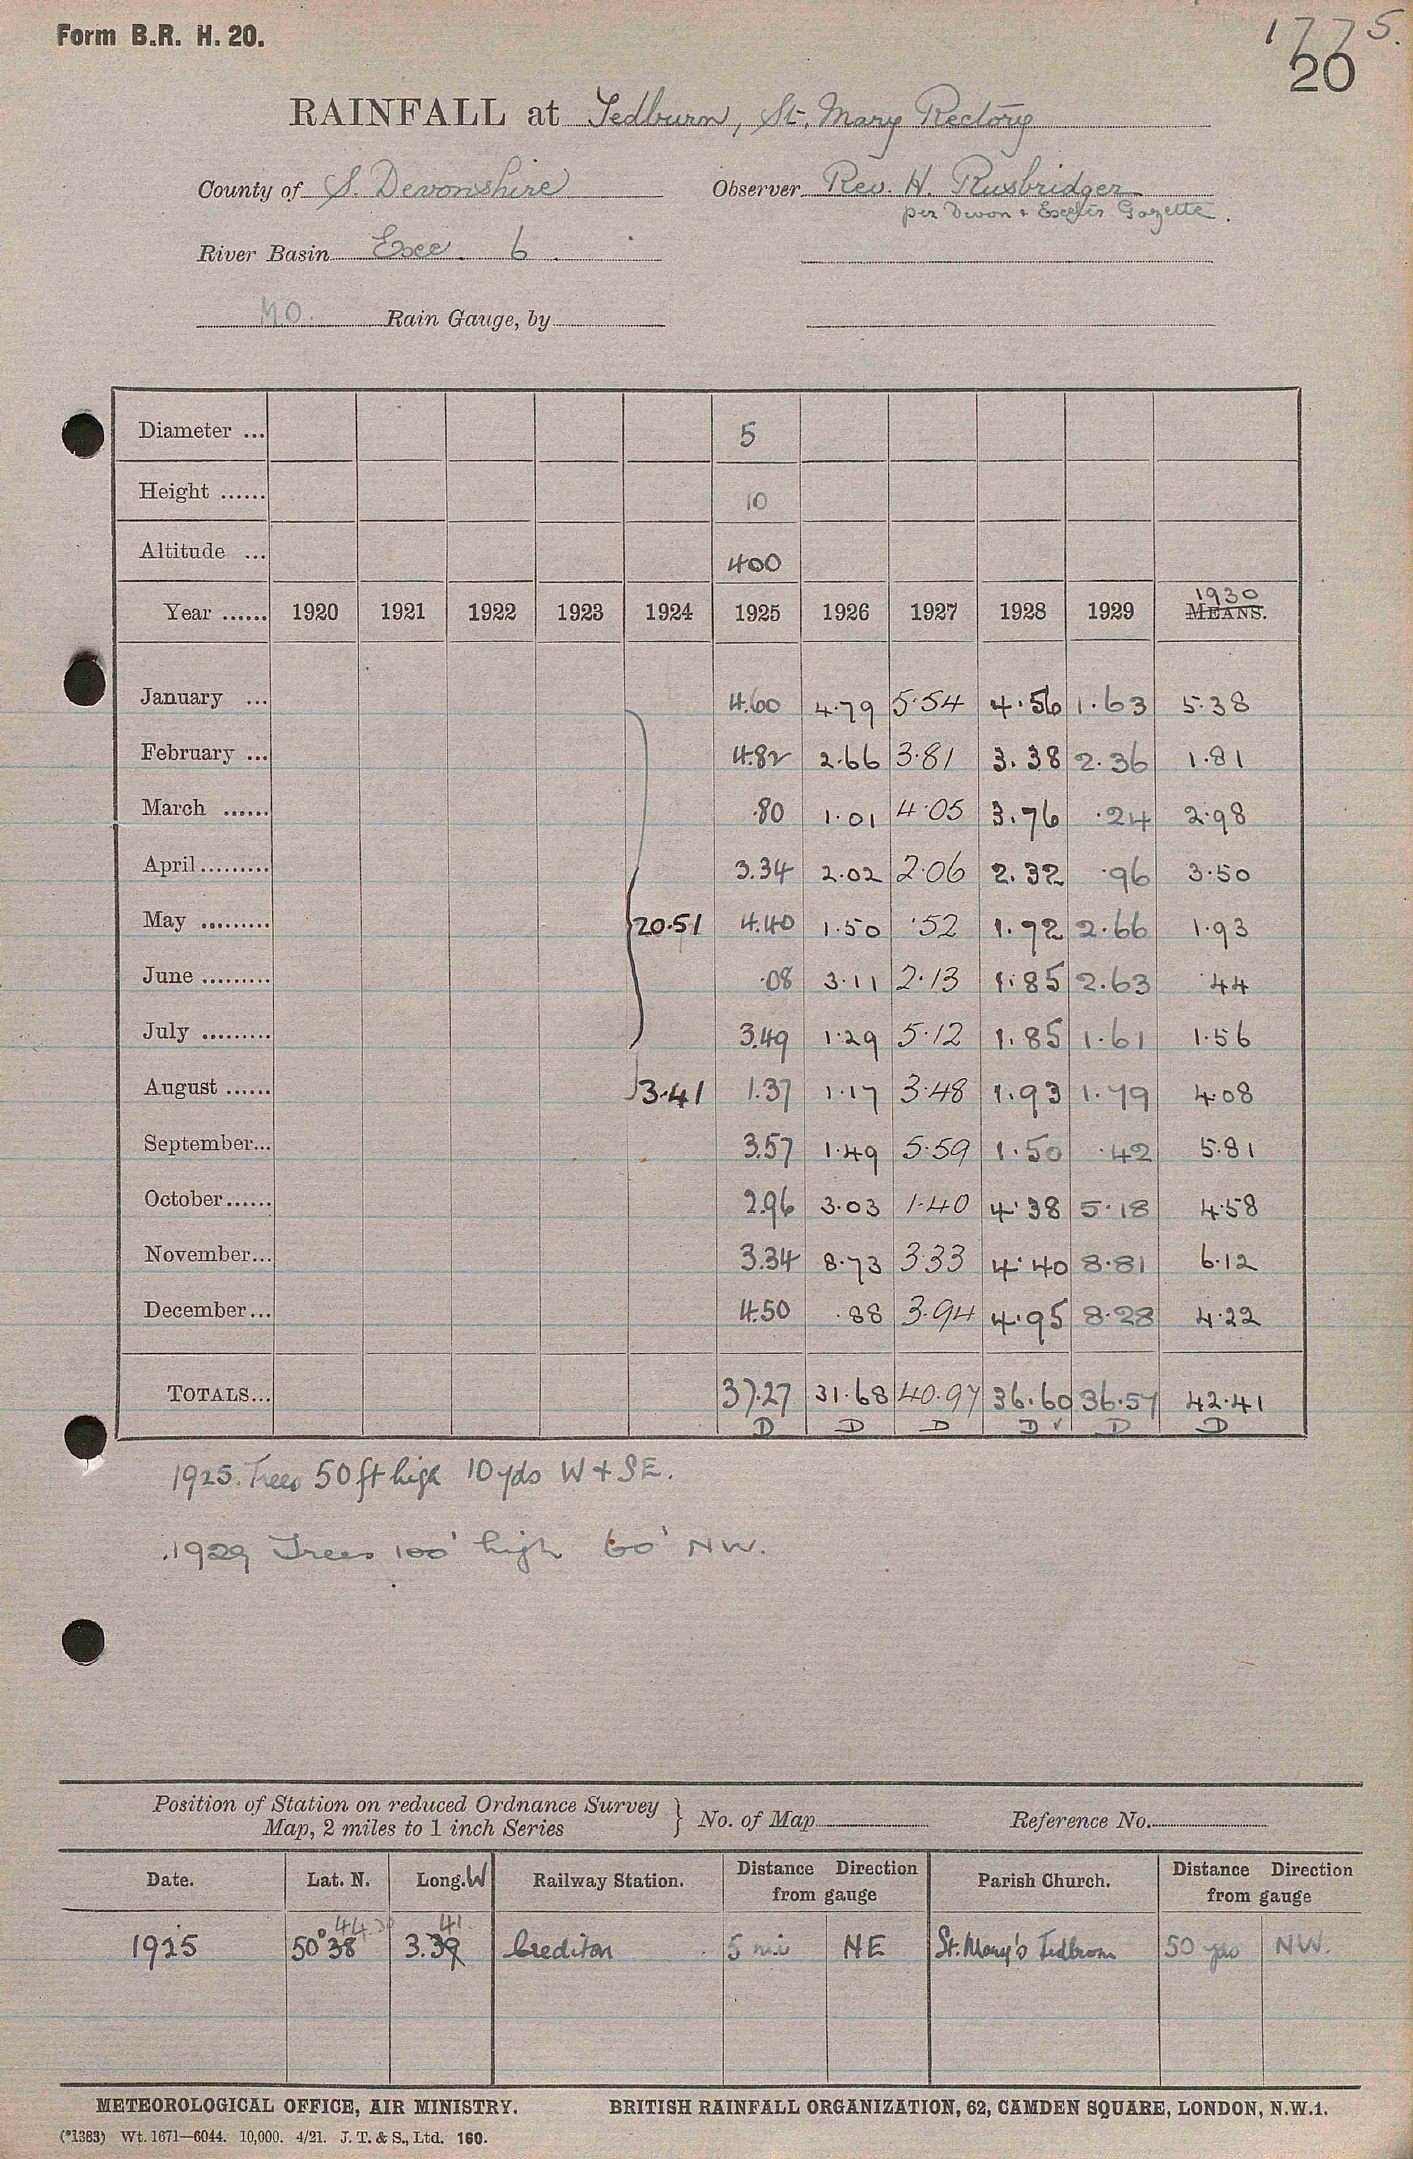 Form B.R. H. 20.
1775.
20
RAINFALL at Tedburn, St. Mary Rectory
County of S. Devonshire Observer Rev. H. Rusbridger
per Devon + Exeter Gazette.
River Basin Exe. 6.
M.O. Rain Gauge, by
Diameter ... 5
Height ...... 10
Altitude ... 400
1930
Year ...... 1920 1921 1922 1923 1924 1925 1926 1927 1928 1929 MEANS.
January ... 4.60 4.79 5.54 4.56 1.63 5.38
February ... 4.82 2.66 3.81 3.38 2.36 1.81
March ...... .80 1.01 4.05 3.76 .24 2.98
April ......... 3.34 2.02 2.06 2.32 .96 3.50
May ......... 20.51 4.40 1.50 .52 1.92 2.66 1.93
June ......... .08 3.11 2.13 1.85 2.63 .44
July ......... 3.49 1.29 5.12 1.85 1.61 1.56
August ...... 3.41 1.37 1.17 3.48 1.93 1.79 4.08
September... 3.57 1.49 5.59 1.50 .42 5.81
October ...... 2.96 3.03 1.40 4.38 5.18 4.58
November... 3.34 8.73 3.33 4.40 8.81 6.12
December... 4.50 .88 3.94 4.95 8.28 4.22
TOTALS... 37.27 31.68 40.97 36.60 36.57 42.41
D D D D ✓ D D
1925. Trees 50 ft high 10 yds W + SE.
1929 Trees 100' high 60' NW.
Position of Station on reduced Ordnance Survey
Map, 2 miles to 1 inch Series } No. of Map Reference No.
Date. Lat. N. Long. W Railway Station. Distance Direction from gauge Parish Church. Distance Direction from gauge
44 30 41.
1925 50°38 3.39 Crediton 5 mi NE St. Mary's Tedburn 50 yds NW.
METEOROLOGICAL OFFICE, AIR MINISTRY. BRITISH RAINFALL ORGANIZATION, 62, CAMDEN SQUARE, LONDON, N.W.1.
(*1383) Wt. 1671—6044. 10,000. 4/21. J. T. & S., Ltd. 160.